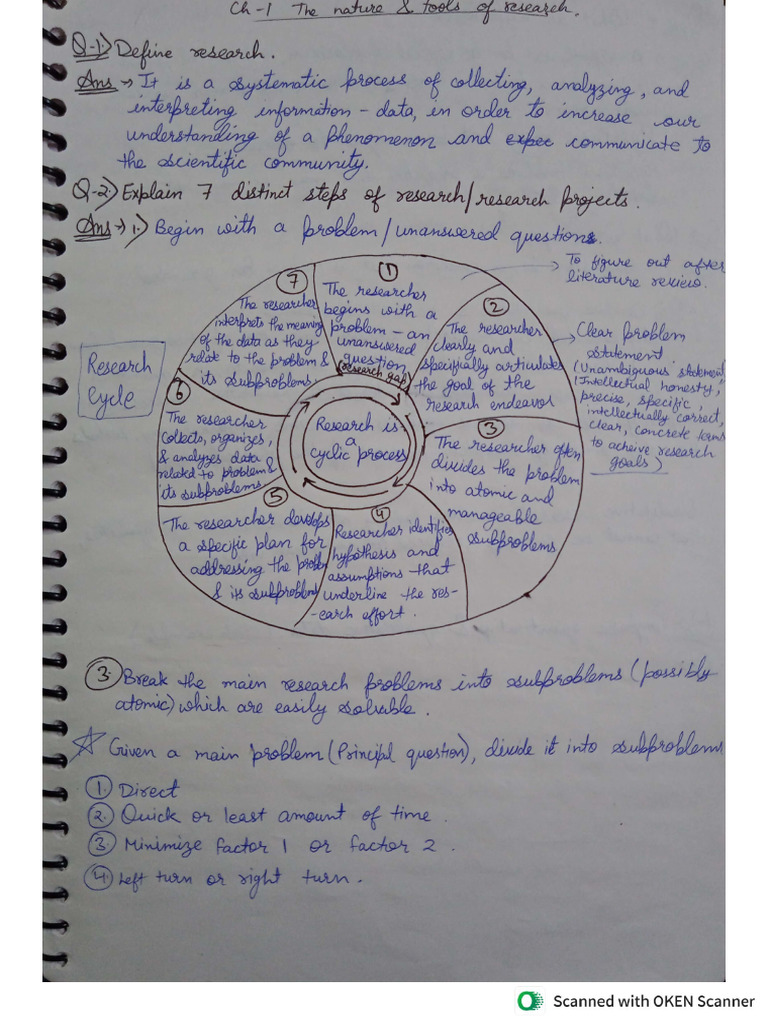 Ch-1 The nature & tools of research.
Q-1:) Define research.
Ans → It is a systematic process of collecting, analyzing, and
interpreting information - data, in order to increase our
understanding of a phenomenon and communicate to
the scientific community.
Q-2:) Explain 7 distinct steps of research/research projects.
Ans → 1. Begin with a problem/unanswered questions.
→ To figure out after
literature review.
Research
Cycle
①
The researcher
begins with a
problem - an
unanswered
question
(research gap)
②
The researcher
clearly and
specifially articulates
the goal of the
research endeavor
→ Clear problem
statement
(Unambiguous statement,
"Intellectual honesty,"
precise, specific,
intellectually correct,
clear, concrete terms
to acheive research
goals)
③
The researcher often
divides the problem
into atomic and
manageable
subproblems
④
Researcher identifies
hypothesis and
assumptions that
underline the res-
-earch effort.
⑤
The researcher develops
a specific plan for
addressing the problem
& its subproblems
⑥
The researcher
collects, organizes,
& analyzes data
related to problem &
its subproblems
⑦
The researcher
interprets the meaning
of the data as they
relate to the problem &
its subproblems
Research is
a
cyclic process
③. Break the main research problems into subproblems (possibly
atomic) which are easily solvable.
☆ Given a main problem (Principal question), divide it into subproblems
①. Direct
②. Quick or least amount of time.
③. Minimize factor 1 or factor 2.
④. Left turn or right turn.
Scanned with OKEN Scanner